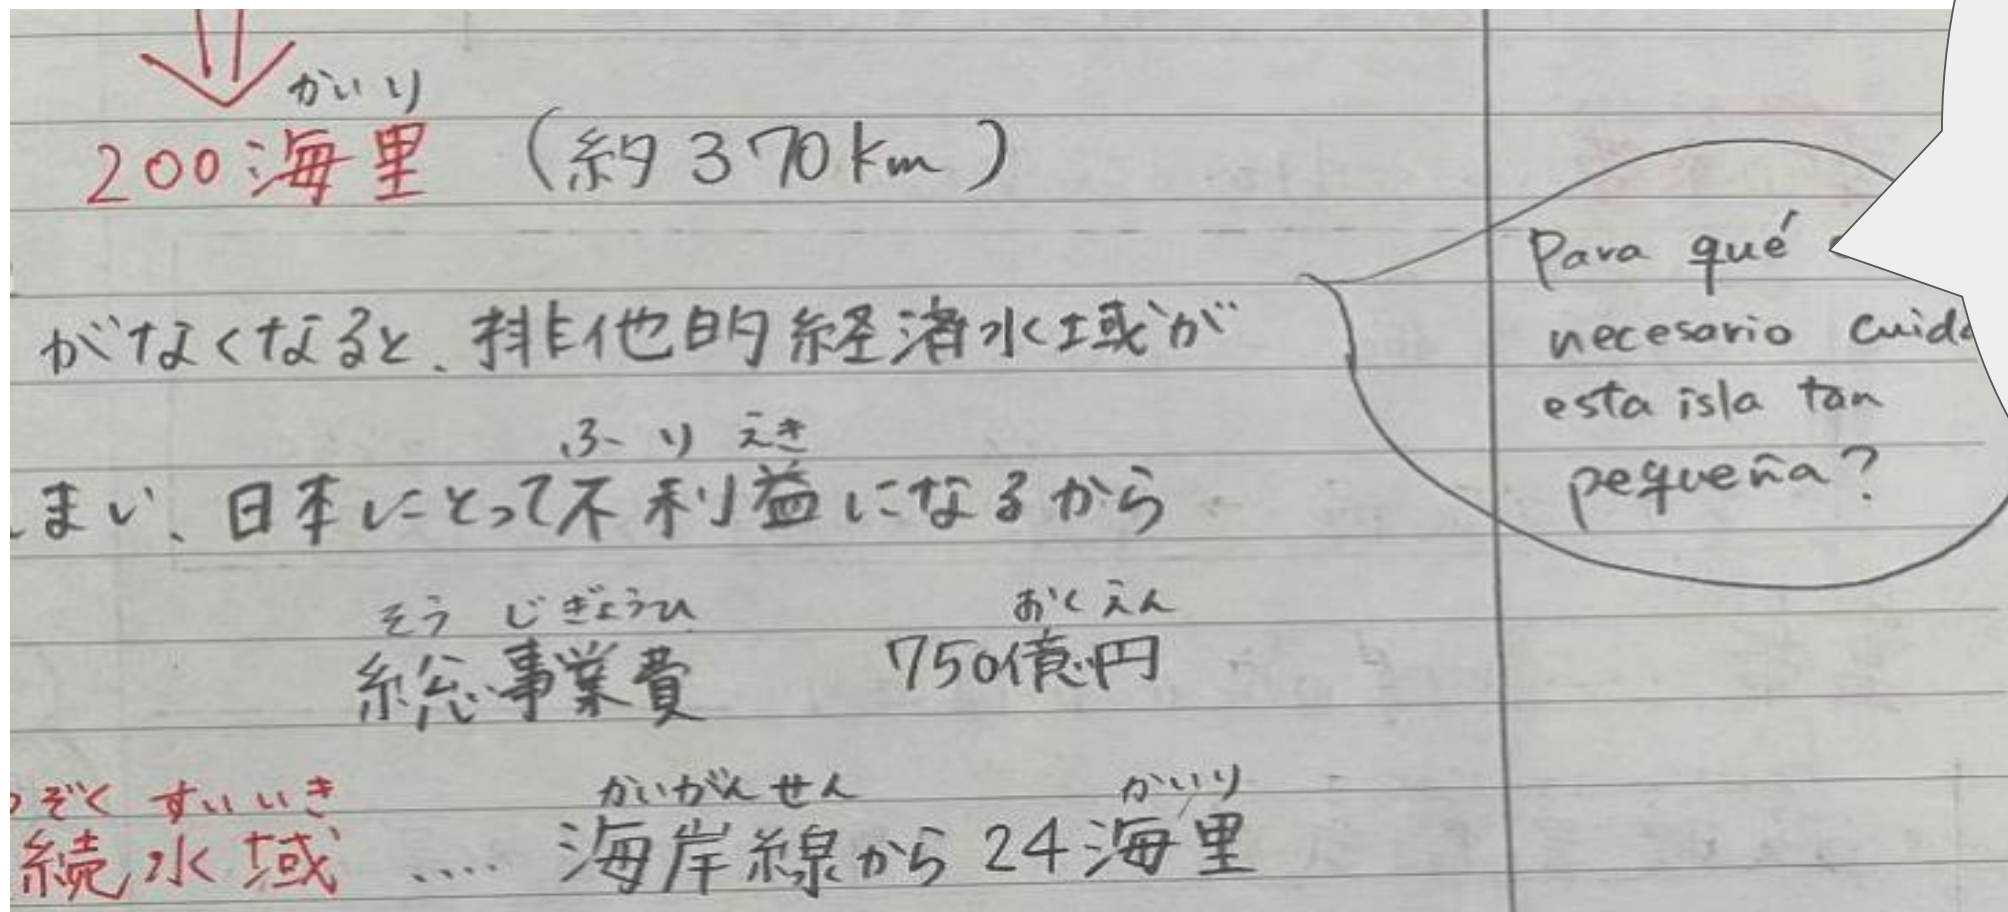 かいり
200海里 (約370km)
がなくなると、排他的経済水域が
ふりえき
まい、日本にとって不利益になるから
そう じぎょうひ おくえん
総事業費 750億円
ぞく すいいき かいがんせん かいり
続水域 .... 海岸線から24海里
Para qué
necesario
esta isla tan
pequeña?